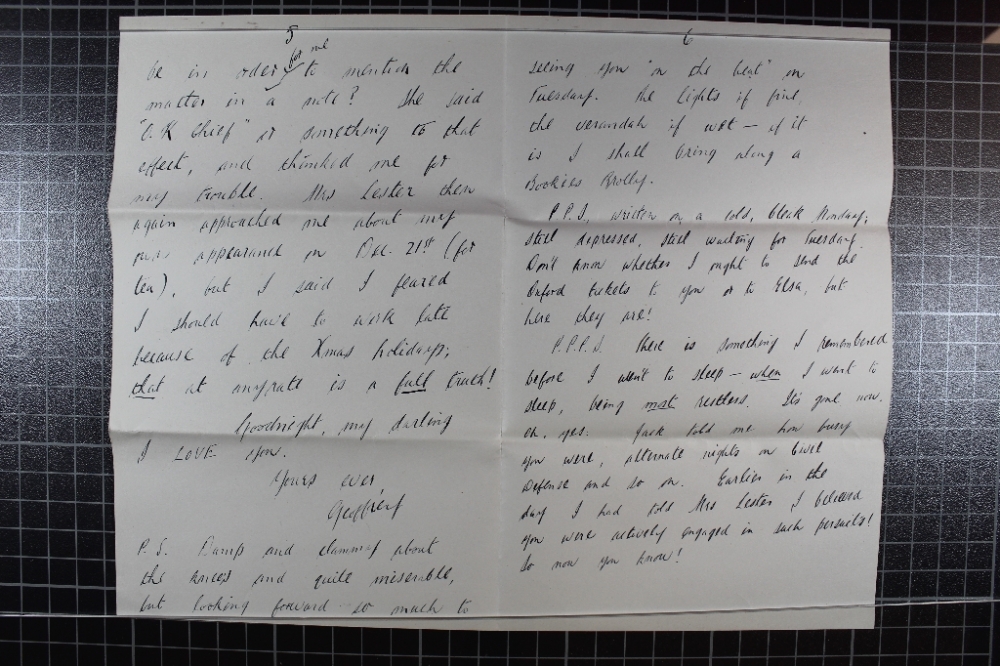 5
be in order for me to mention the
matter in a note? She said
"O.K Chief" or something to that
effect, and thanked me for
my trouble. Mrs Lester then
again approached me about my
appearance on Dec. 21st (for
tea), but I said I feared
I should have to work late
because of the Xmas holidays;
that at anyrate is a full truth!
Goodnight, my darling
I LOVE you.
Yours ever,
Geoffrey
P.S. Damp and clammy about
the knees and quite miserable,
but looking forward so much to
6
seeing you "on the beat" on
Tuesday. The lights if fine,
the verandah if wet – if it
is I shall bring along a
Bookies Brolly.
P.P.S. written on a cold, bleak Monday;
still depressed, still waiting for Tuesday.
Don't know whether I ought to send the
Oxford tickets to you or to Elsa, but
here they are!
P.P.P.S. There is something I remembered
before I went to sleep – when I went to
sleep, being most restless. It's gone now.
Oh, yes. Jack told me how busy
you were, alternate nights on Civil
Defense and so on. Earlier in the
day I had told Mrs Lester I believed
you were actively engaged in such persuits!
So now you know!